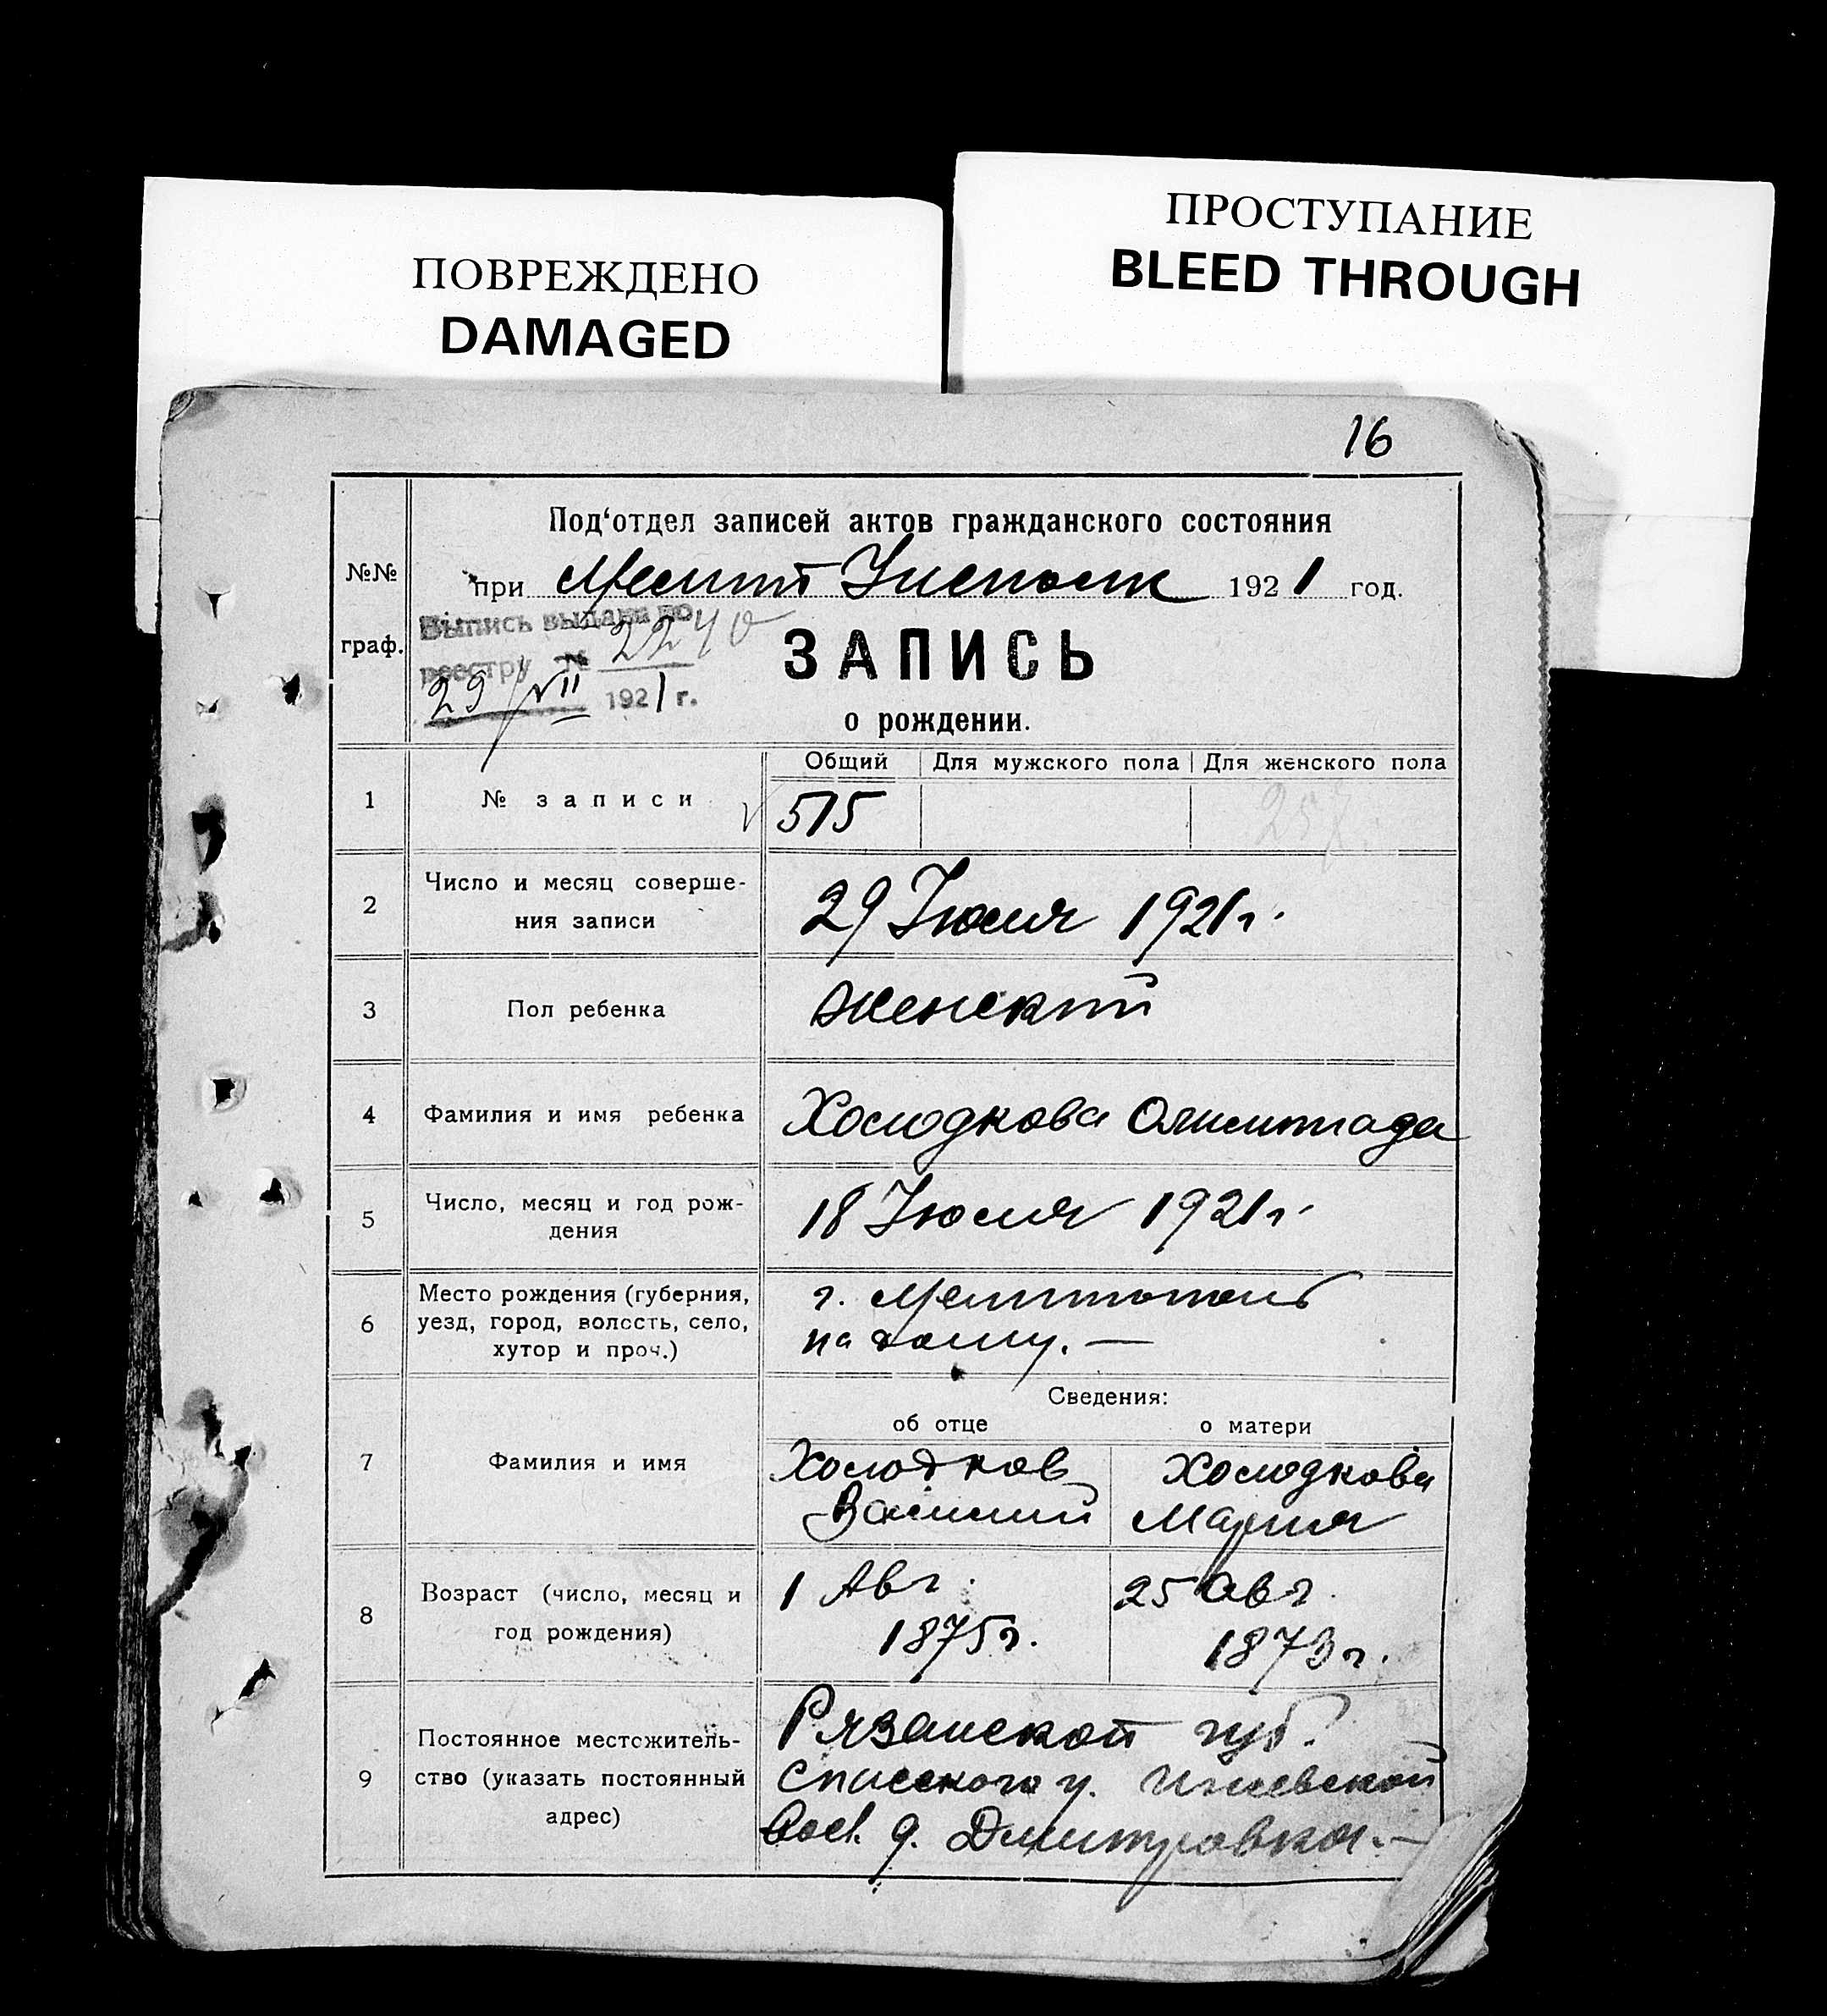 ПОВРЕЖДЕНО
DAMAGED
ПРОСТУПАНИЕ
BLEED THROUGH
16
№№
граф.
Под‘отдел записей актов гражданского состояния
при Мелит Исполк 1921 год.
Выпись выдана по
реестру № 2240
29/VII 1921 г.
ЗАПИСЬ
о рождении.
Общий Для мужского пола Для женского пола
1 № записи 515 257
2 Число и месяц соверше-
ния записи 29 Июля 1921 г.
3 Пол ребенка Женский
4 Фамилия и имя ребенка Холодкова Олимпиада
5 Число, месяц и год рож-
дения 18 Июля 1921 г.
6 Место рождения (губерния,
уезд, город, волость, село,
хутор и проч.)
г. Мелитополь
на дому. —
Сведения:
об отце о матери
7 Фамилия и имя
Холодков Холодкова
Василий Мария
8 Возраст (число, месяц и
год рождения)
1 Авг. 25 Авг.
1875 г. 1873 г.
9 Постоянное местожитель-
ство (указать постоянный
адрес)
Рязанской губ.
Спасского у. Ижевской
вол. д. Дмитровка. —